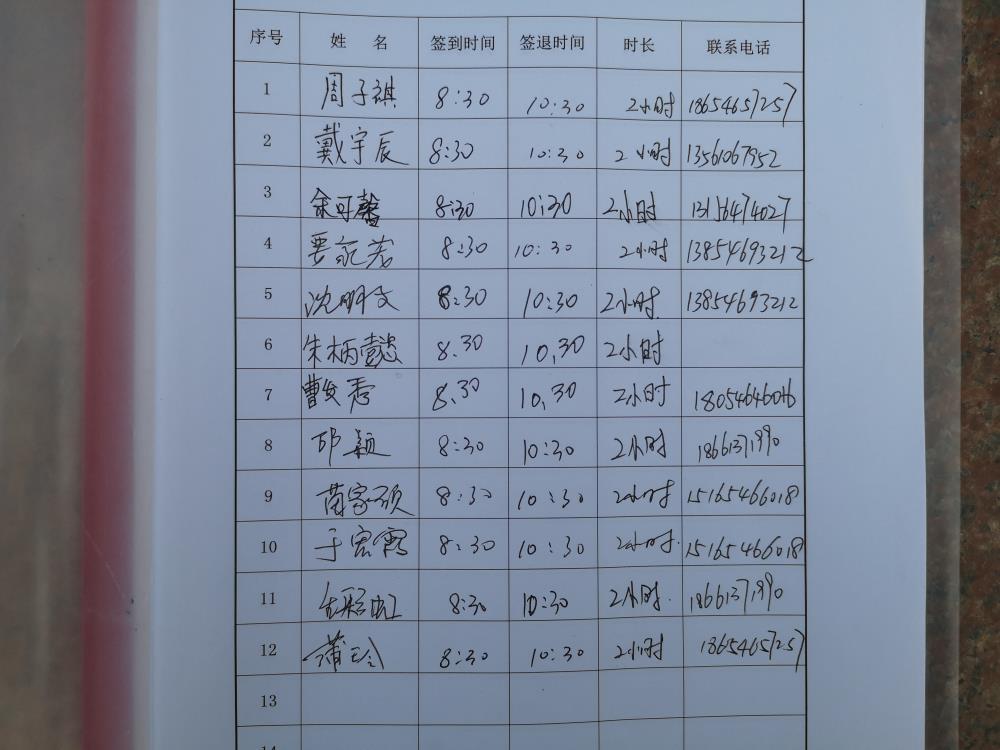 序号 姓 名 签到时间 签退时间 时长 联系电话
1 周子祺 8:30 10:30 2小时 18654657257
2 戴宇辰 8:30 10:30 2小时 13561067952
3 余可馨 8:30 10:30 2小时 13156474027
4 8:30 10:30 2小时 13854693212
5 沈明文 8:30 10:30 2小时 13854693212
6 朱柄壹 8.30 10.30 2小时
7 曹俊秀 8.30 10.30 2小时 18054646016
8 邱颖 8:30 10:30 2小时 18661371990
9 苗家硕 8:30 10:30 2小时 15165466018
10 于宏霞 8:30 10:30 2小时. 15165466018
11 8:30 10:30 2小时. 18661371990
12 蒲玲 8:30 10:30 2小时 18654657257
13